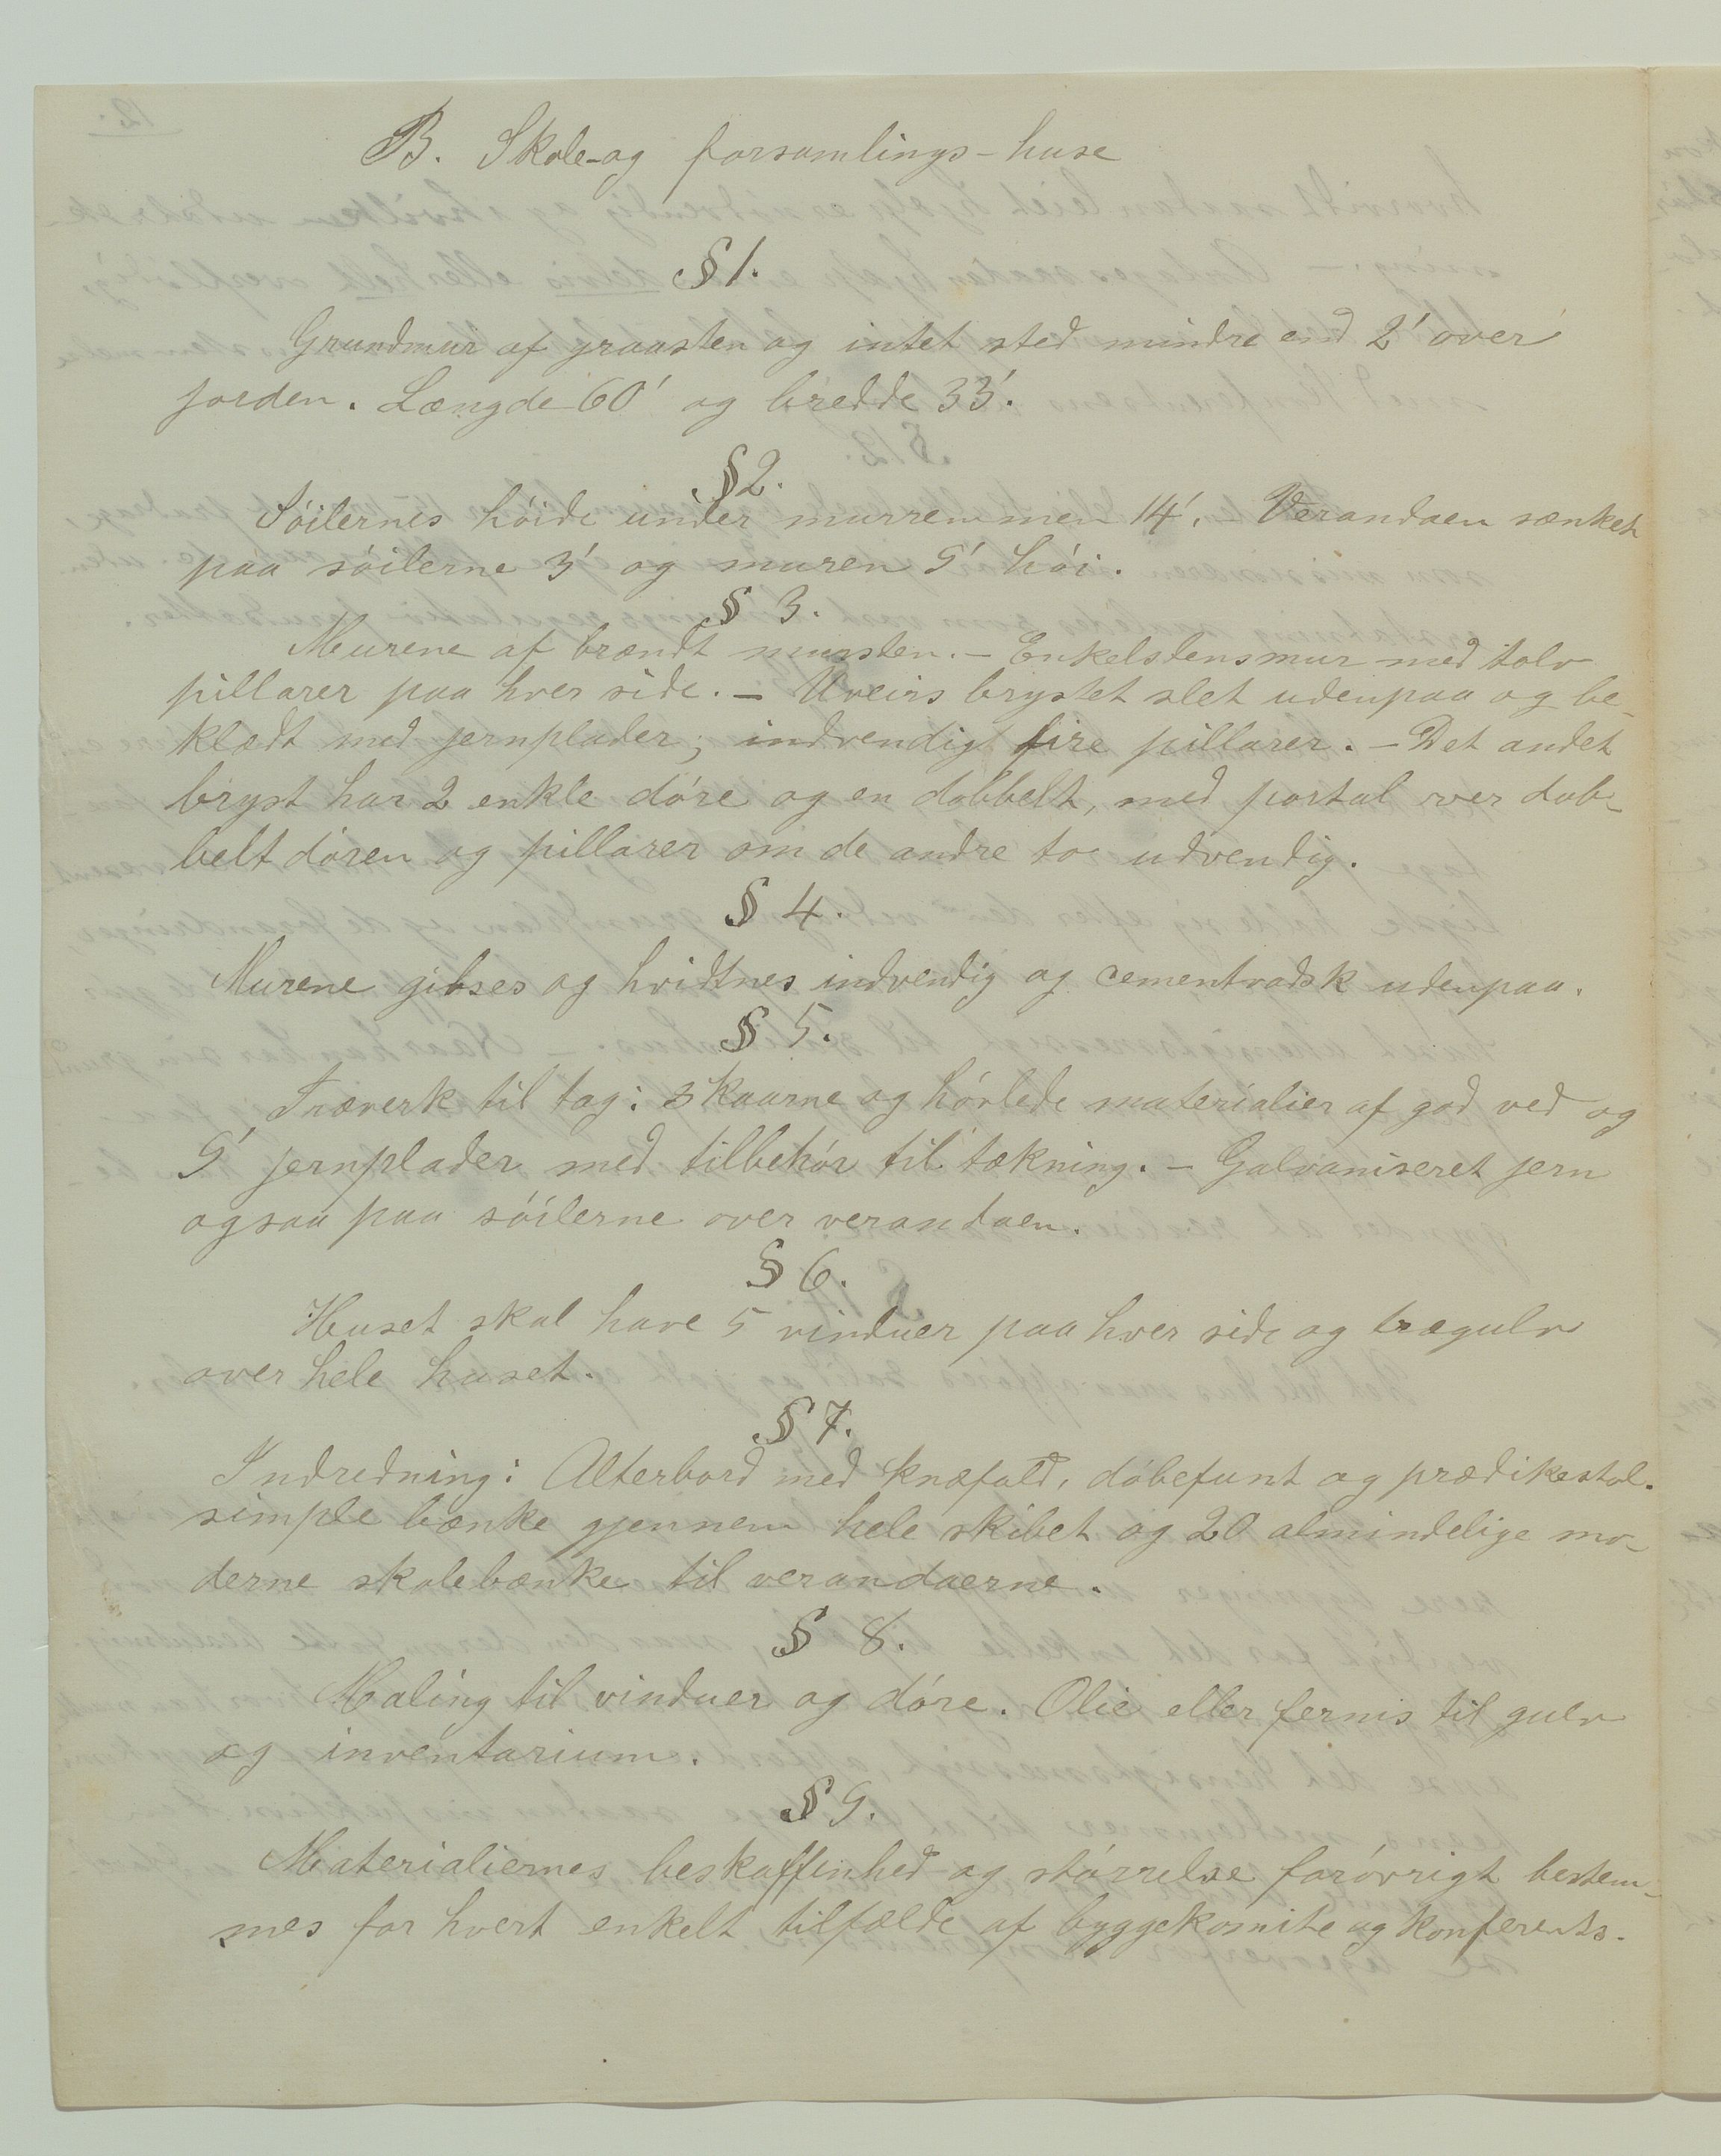 B. Skole- og forsamlings-huse
§ 1.
Grundmur af graasten og intet sted mindre end 2' over
jorden. Længde 60' og bredde 33'.
§ 2.
Söilernes höide under murremmen 14'. - Verandaen sænket
paa söilerne 3' og muren 9' höi.
§ 3.
Murene af brændt mursten. - Enkelstensmur med tolv
pillarer paa hver side. - Uveirs brystet slet udenpaa og be-
klædt med jernplader; indvendig fire pillarer. - Det andet
bryst har 2 enkle döre og en dobbelt, med portal over dob-
belt dören og pillarer om de andre to udvendig.
§ 4.
Murene gibses og hvidtnes indvendig og cementvadsk udenpaa.
§ 5.
Træverk til tag: skaarne og hövlede materialier af god ved og
9' jernplader med tilbehör til tækning. - Galvaniseret jern
ogsaa paa söilerne over verandaen.
§ 6.
Huset skal have 5 vinduer paa hver side og trægulv
over hele huset.
§ 7.
Indredning: Alterbord med knæfald, döbefunt og prædikestol.
simple bænke gjennem hele skibet og 20 almindelige mo-
derne skolebænke til verandaerne.
§ 8.
Maling til vinduer og döre. Olie eller fernis til gulv
og inventarium.
§ 9.
Materialiernes beskaffenhed og störrelse foróvrigt bestem-
mes for hvert enkelt tilfælde af byggekomite og konferents.